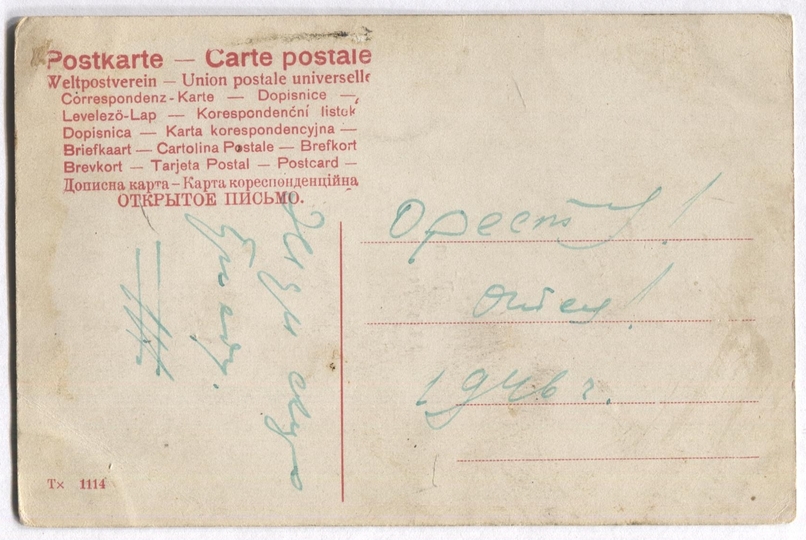 Postkarte — Carte postale
Weltpostverein — Union postale universelle
Correspondenz-Karte — Dopisnice —
Levelező-Lap — Korespondenční listok
Dopisnica — Karta korespondencyjna —
Briefkaart — Cartolina Postale — Brefkort
Brevkort — Tarjeta Postal — Postcard —
Дописна карта – Карта кореспонденційна
ОТКРЫТОЕ ПИСЬМО.
Оресту!
1946 г.
Тх 1114